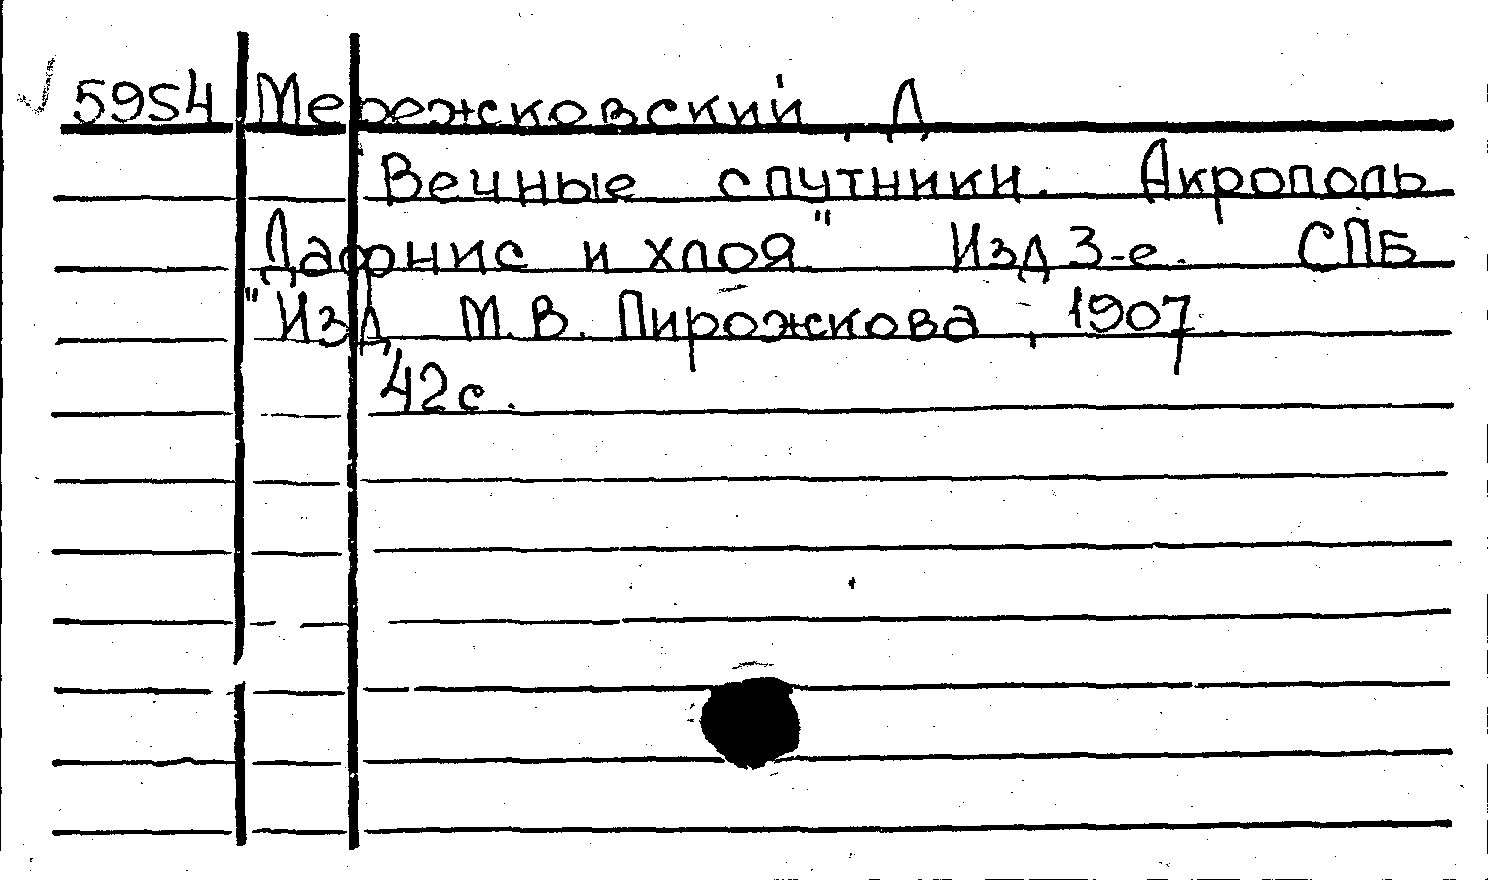 5954 Мережковский, Д
Вечные спутники. Акрополь
Дафнис и хлоя" Изд 3-е. СПБ
"Изд М.В. Пирожкова, 1907
42с.